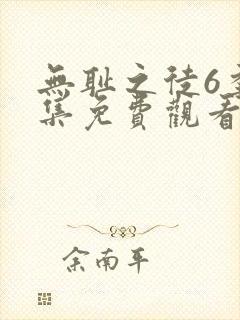 無耻之徒6季
集免費觀看
余南平